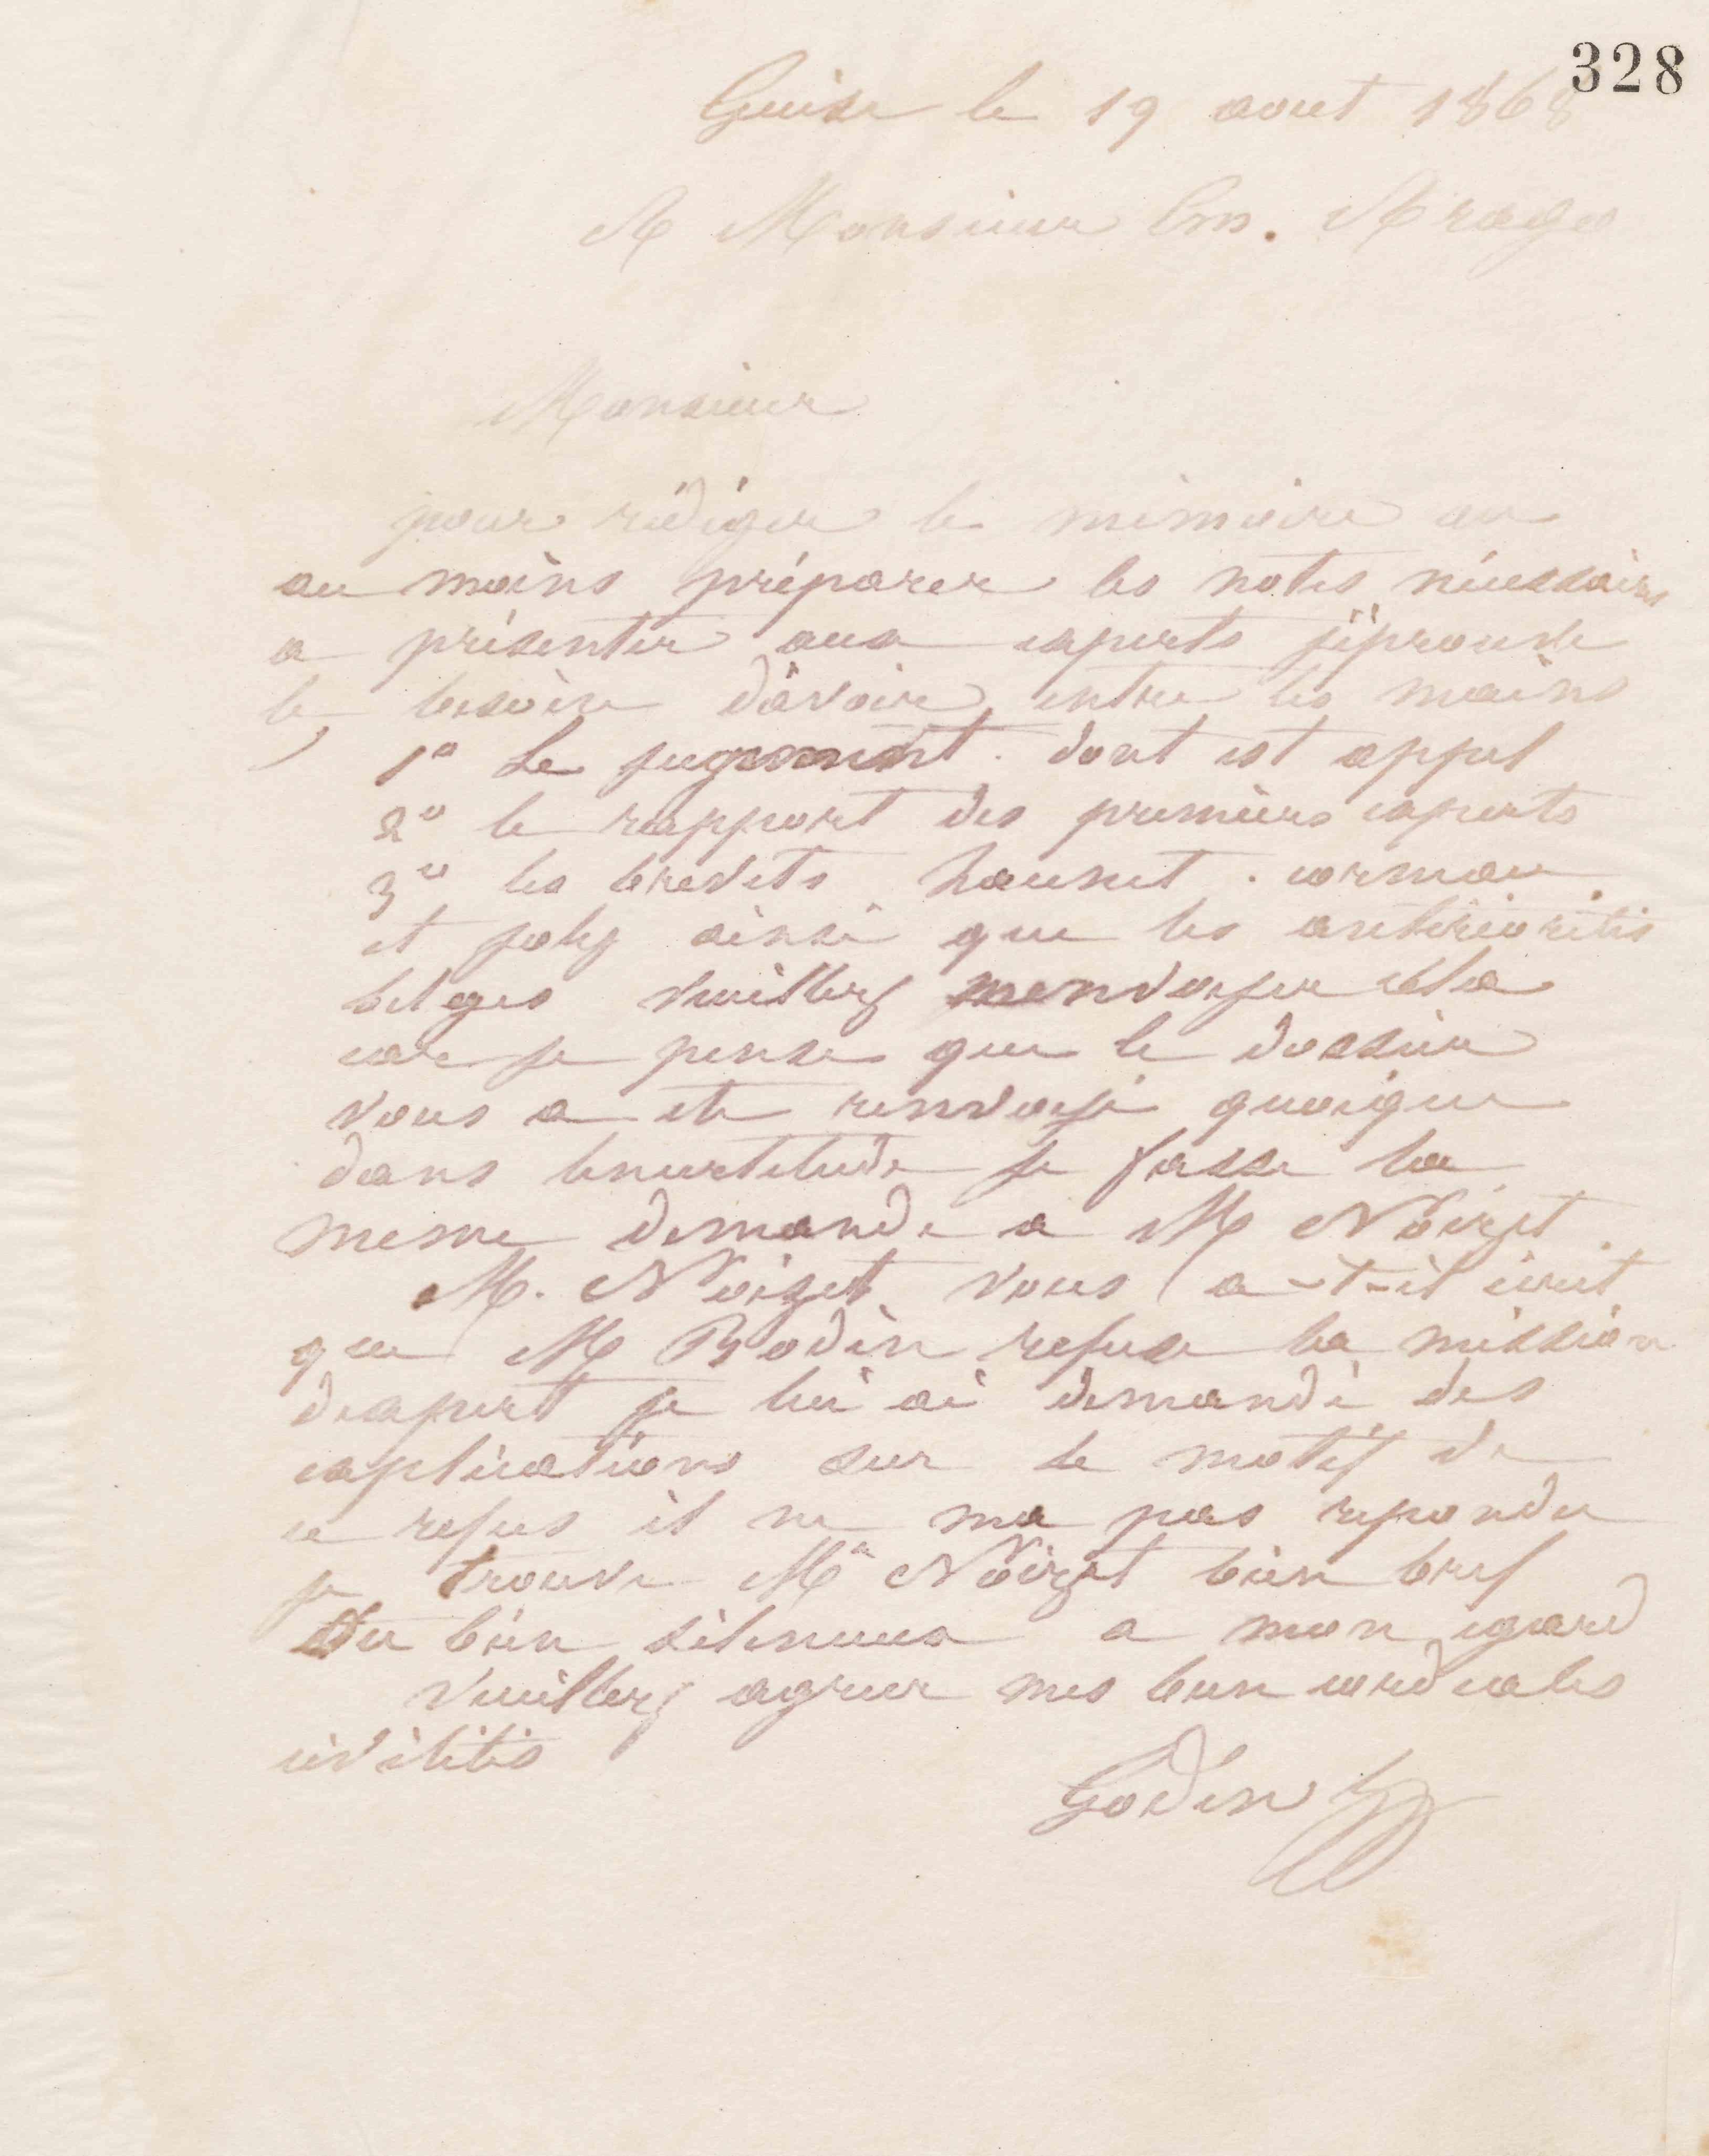 328
Guise le 19 aout 1868
A Monsieur Em. Arago
Monsieur
pour rédiger le mémoire ou
au moins préparer les notes nécessaires
a présenter aux experts j'éprouve
le besoin d'avoir entre les mains
1º Le jugement dont est appel
2º le rapport des premiers experts
3º les brevets
et joly ainsi que les antériorités
belges veuillez menvoyer cela
car je pense que le dossier
vous a ete renvoyé quoique
dans lincertitude je fasse la
meme demande a M Noizet
M. Noizet vous a-t-il écrit
que M Bodin refuse la mission
dexpert je lui ai demandé des
explications sur le motif de
ce refus il ne ma pas repondu
je trouve Mr Noizet bien bref
Ou bien silencieux a mon egard
Veuillez agreer mes bien cordiales
civilités
Godin